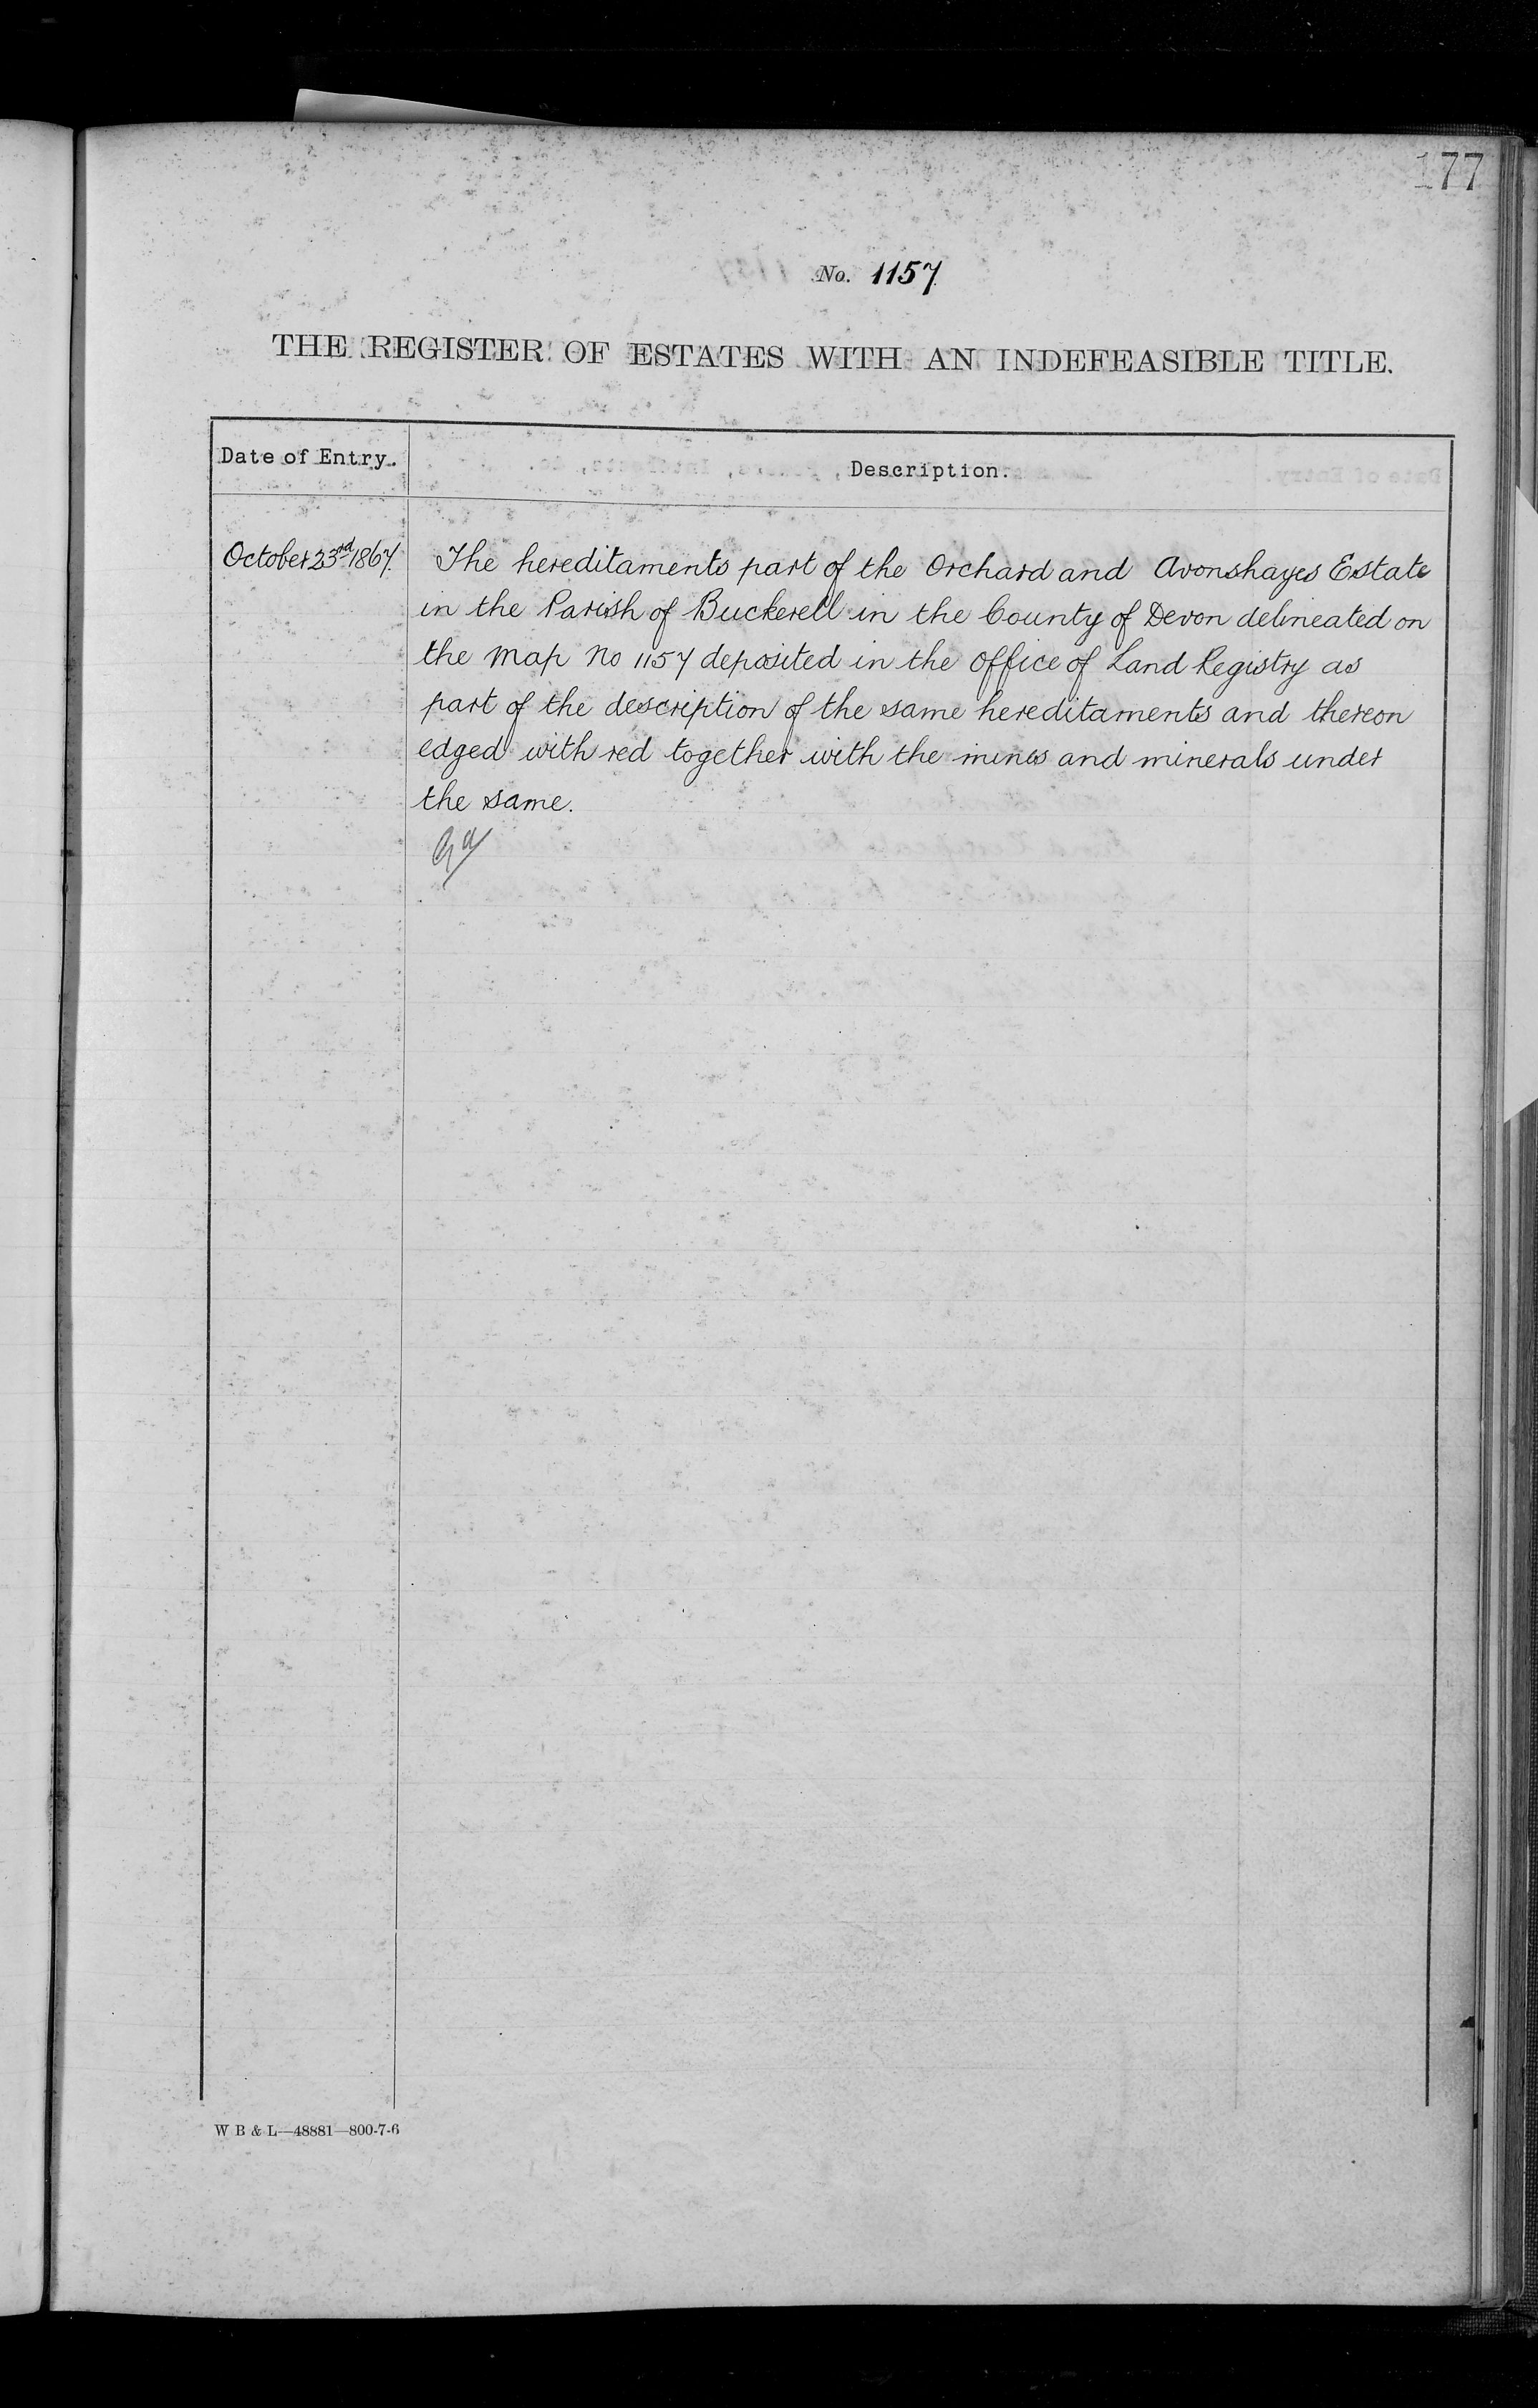 177
No. 1157
THE REGISTER OF ESTATES WITH AN INDEFEASIBLE TITLE.
Date of Entry. Description.
October 23rd 1867. The hereditaments part of the Orchard and Avonshayes Estate
in the Parish of Buckerell in the County of Devon delineated on
the Map No 1157 deposited in the Office of Land Registry as
part of the description of the same hereditaments and thereon
edged with red together with the mines and minerals under
the same.
W B & L—48881—800-7-6